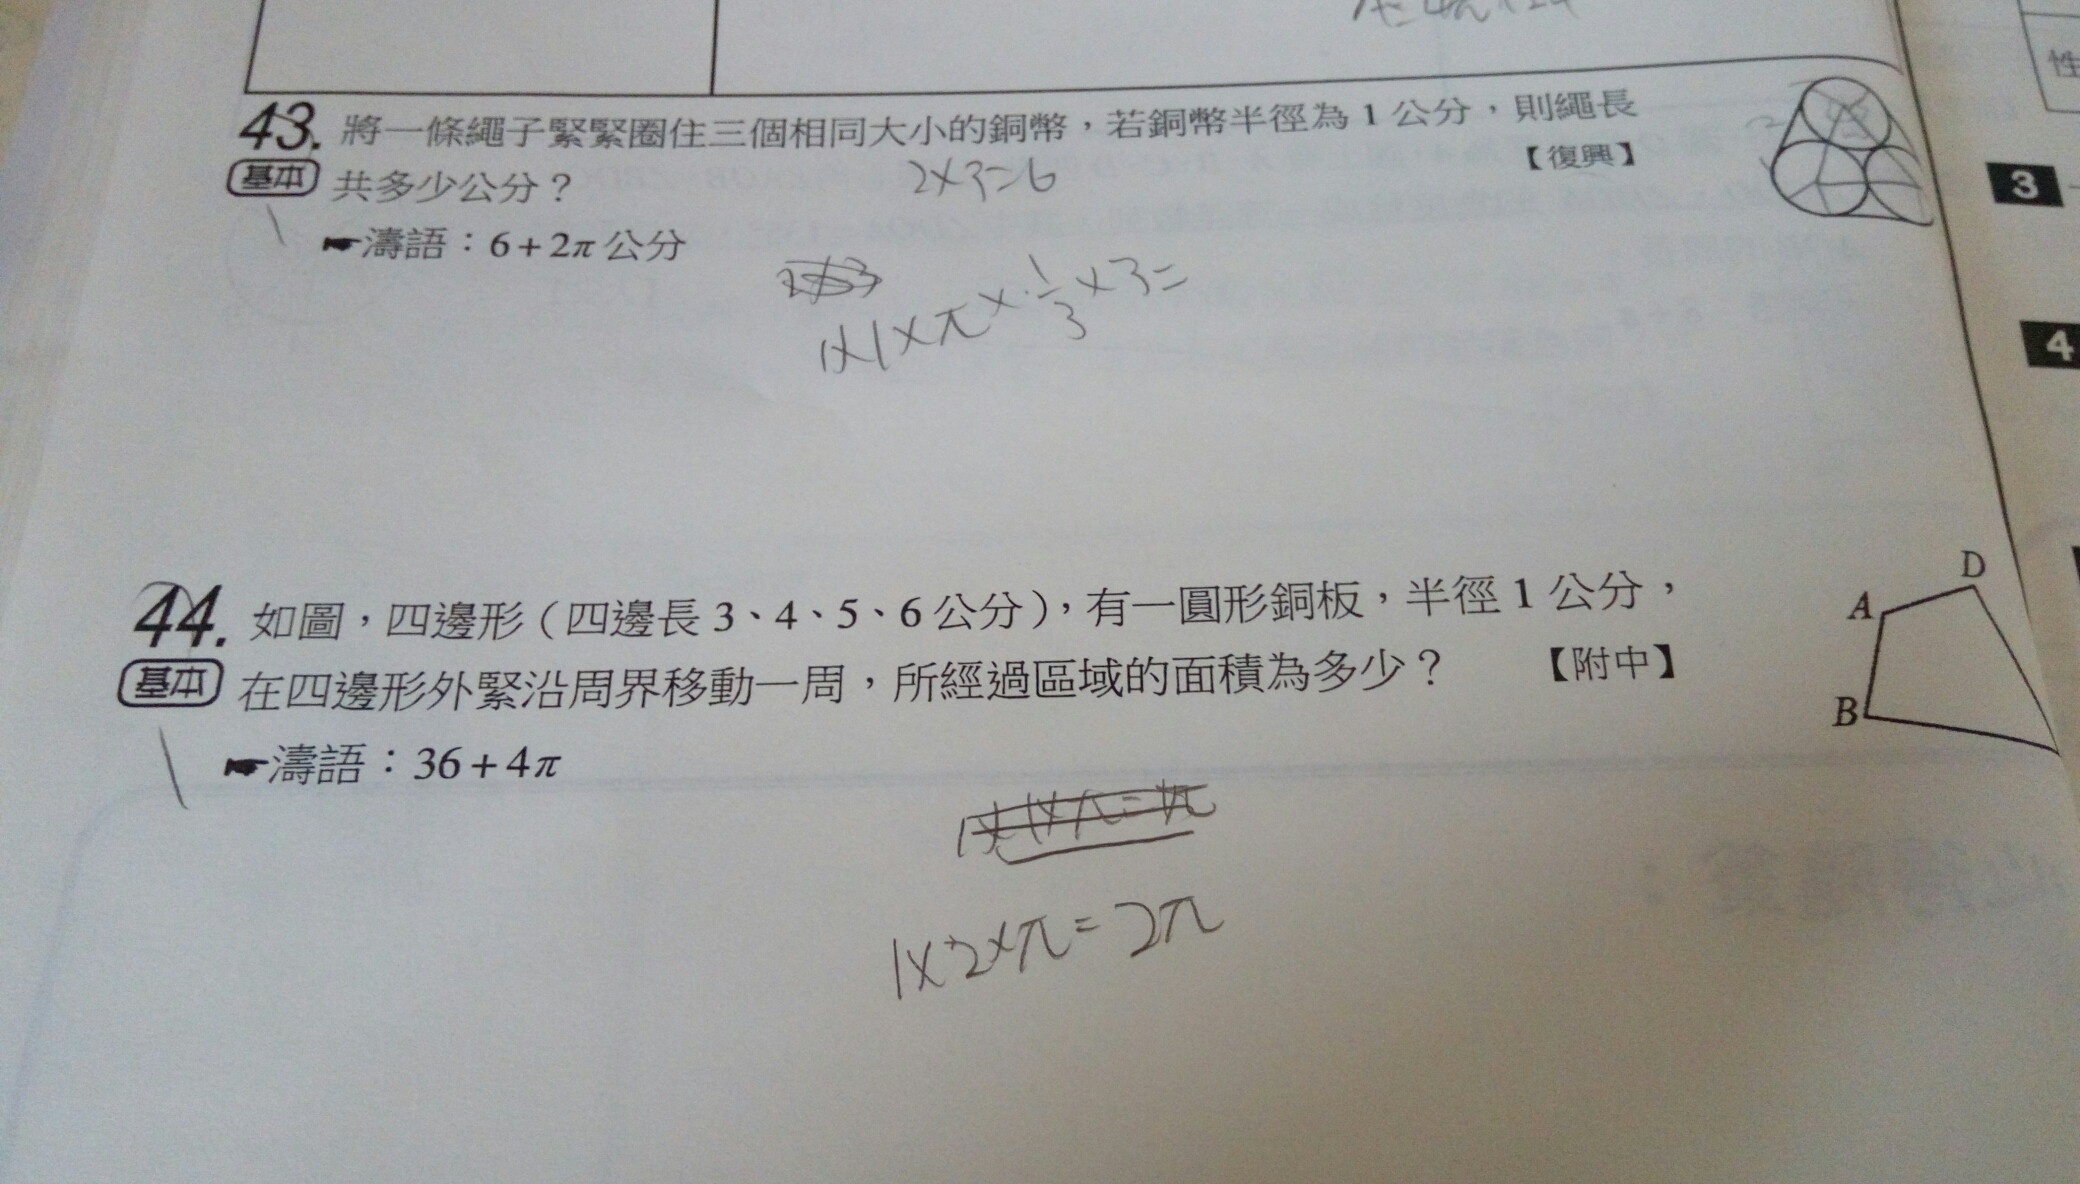 43. 將一條繩子緊緊圈住三個相同大小的銅幣，若銅幣半徑為 1 公分，則繩長
基本 共多少公分？ 【復興】
2×3=6
☛濤語：6+2π 公分
1×1×π×1/3×3=
性
3
4
44. 如圖，四邊形（四邊長 3、4、5、6 公分），有一圓形銅板，半徑 1 公分，
基本 在四邊形外緊沿周界移動一周，所經過區域的面積為多少？ 【附中】
☛濤語：36+4π
A
D
B
1×2×π=2π